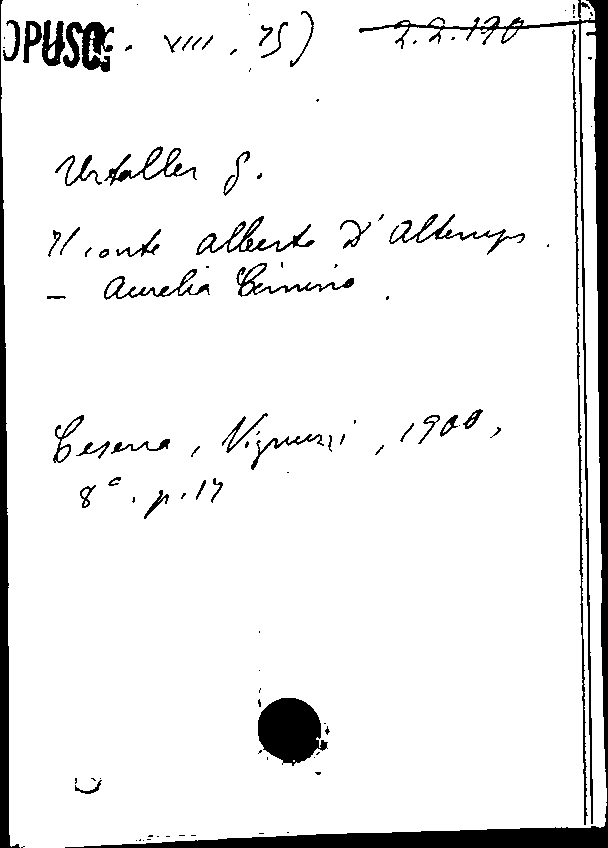 OPUSC. VIII. 75) 2.2.190
Urtoller G.
Il conte Alberto D'Altemps.
- Aurelia Cimino.
Cesena, Vignuzzi, 1900,
8°. p. 17